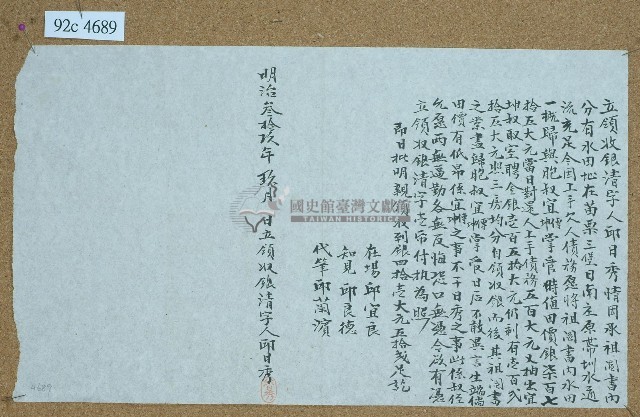 92c 4689
立領收銀清字人邱日秀情因承祖鬮書內
分有水田址在苗栗三堡日南庄原帶圳水通
流充足今因上手欠人債務愿將祖鬮書內水田
一概歸與胞叔宜 掌管時值田價銀柒百七
拾五大元當日對還人上手債務五百大元又抽出宜
坤叔取室聘金銀壹百五拾大元仍剩有壹百弍
拾五大元照三房均分自領收銀而後其祖鬮書
之業盡歸胞叔宜 掌管日后不敢異言生端倘
田價有低昂係宜 之事不干日秀之事此係叔侄
允愿兩無逼勒各無反悔恐口無憑今欲有憑
立領收銀清字壹帋付执為照
即日批明親 領收到銀四拾壹大元五拾 足訖
在場邱宜良
知見邱良德
代筆邱蘭濱
明治叁拾玖年玖月 日立領收銀清字人邱日秀
國史館臺灣文獻館
TAIWAN HISTORICA
4689